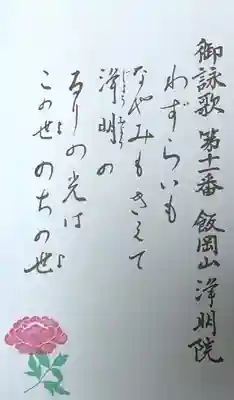 御詠歌 第十一番 飯岡山 浄明院
わずらいも
なやみもきえて
浄明の
るりの光は
この世のちの世